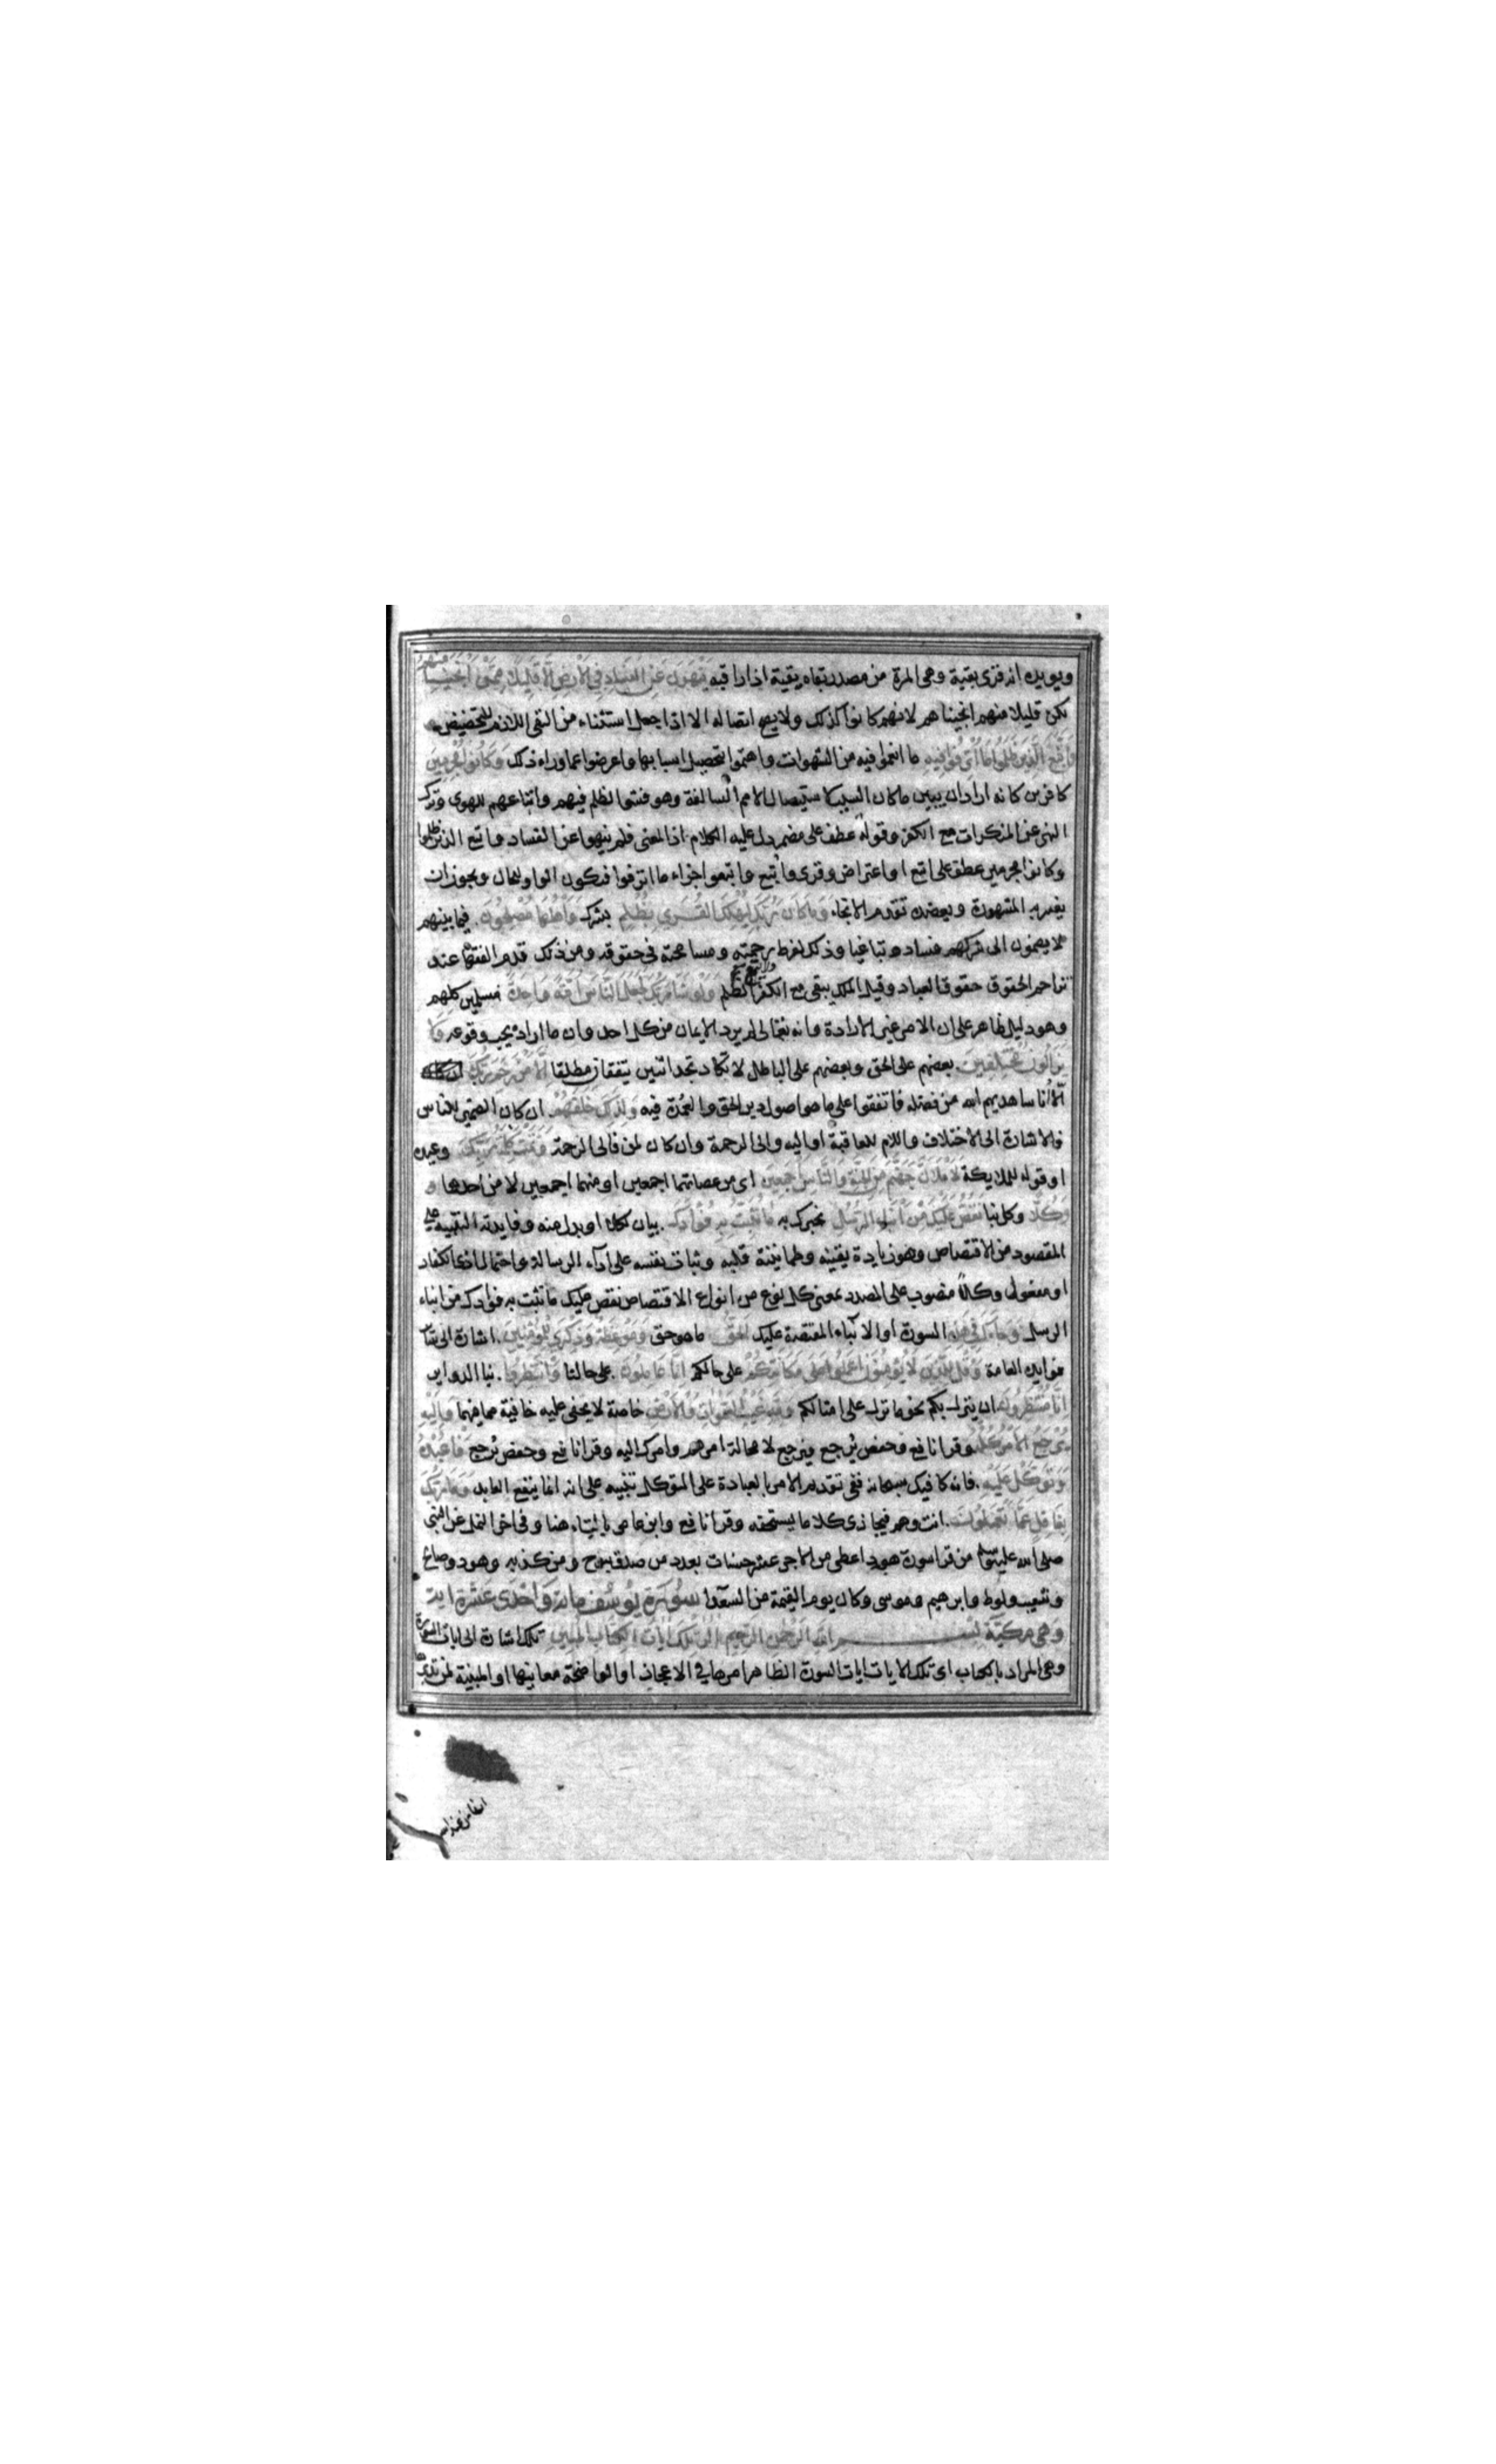 ويويده انه قرى بقية وهى المرة من مصدر بقاه يقيه اذا راقبه يَنْهَوْنَ عَنِ الْفَسَادِ فِي الْاَرْضِ اِلَّا قَلِيْلًا مِمَّنْ اَنْجَيْنَا مِنْهُمْ
لكن قليلا منهم انجيناهم لانهم كانوا كذلك ولا يصح اتصاله الا اذا جعل استثناء من النفى اللازم للتحضيض
وَاتَّبَعَ الَّذِيْنَ ظَلَمُوا مَا اُتْرِفُوا فِيهِ ما انعموا فيه من الشهوات واهتموا بتحصيل اسبابها واعرضوا عما وراء ذلك وَكَانُوا مُجْرِمِيْنَ
كافرين كانه اراد ان يبين ما كان السبب لاستيصال الامم السالفة وهو فشو الظلم فيهم واتباعهم للهوى وترك
النهى عن المنكرات مع الكفر وقوله عطف على مضمر دل عليه الكلام اذ المعنى فلم ينهوا عن الفساد واتبع الذين ظلموا
وكانوا مجرمين عطف على اتبع او اعتراض وقرى واُتبع واتبعوا جزاء ما اترفوا فيكون الواو للحال ويجوز ان
يفسر به المشهورة ويعضده تقدم الانجاء وَمَا كَانَ رَبُّكَ لِيُهْلِكَ الْقُرٰى بِظُلْمٍ بشرك وَاَهْلُهَا مُصْلِحُوْنَ فيما بينهم
لا يضمون الى شركهم فسادا وتباغيا وذلك لفرط رحمته ومسامحته فى حقوقه ومن ذلك قدم الفقهاء عند
تزاحم الحقوق حقوق العباد وقيل الملك يبقى مع الكفر ولا يبقى مع الظلم وَلَوْ شَاءَ رَبُّكَ لَجَعَلَ النَّاسَ اُمَّةً وَاحِدَةً مسلمين كلهم
وهو دليل ظاهر على ان الامر غير الارادة وانه تعالى لم يرد الايمان من كل احد وان ما اراده يجب وقوعه وَلَا
يَزَالُوْنَ مُخْتَلِفِيْنَ بعضهم على الحق وبعضهم على الباطل لا تكاد تجد اثنين يتفقان مطلقا اِلَّا مَنْ رَحِمَ رَبُّكَ
الا اناسا هديهم الله من فضله فاتفقوا على ما هو اصول دين الحق والعمدة فيه وَلِذٰلِكَ خَلَقَهُمْ ان كان الضمير للناس
فالاشارة الى الاختلاف واللام للعاقبة او اليه والى الرحمة وان كان لمن فالى الرحمة وَتَمَّتْ كَلِمَةُ رَبِّكَ وعيده
او قوله للملايكة لَاَمْلَاَنَّ جَهَنَّمَ مِنَ الْجِنَّةِ وَالنَّاسِ اَجْمَعِيْنَ اى من عصاتهما اجمعين او منهما اجمعين لا من احدهما و
وَكُلًّا وكل نبا نَقُصُّ عَلَيْكَ مِنْ اَنْبَاءِ الرُّسُلِ نخبرك به مَا نُثَبِّتُ بِهِ فُؤَادَكَ بيان لكلا او بدل منه وفايدته التنبيه على
المقصود من الاقتصاص وهو زيادة يقينه وطمانينة قلبه وثبات نفسه على اداء الرسالة واحتمال اذى الكفار
او مفعول وكلاً منصوب على المصدر بمعنى كل نوع من انواع الاقتصاص نقص عليك ما نثبت به فوادك من انباء
الرسل وَجَاءَكَ فِي هٰذِهِ السورة او الانباء المقتصة عليك الْحَقُّ ما هو حق وَمَوْعِظَةٌ وَذِكْرٰى لِلْمُؤْمِنِيْنَ اشارة الى سائر
فوايده العامة وَقُلْ لِلَّذِيْنَ لَا يُؤْمِنُوْنَ اعْمَلُوا عَلٰى مَكَانَتِكُمْ على حالكم اِنَّا عَامِلُوْنَ على حالنا وَانْتَظِرُوا بنا الدواير
اِنَّا مُنْتَظِرُوْنَ ان ينزل بكم نحو ما نزل على امثالكم وَلِلّٰهِ غَيْبُ السَّمٰوَاتِ وَالْاَرْضِ خاصة لا يخفى عليه خافية مما فيهما وَاِلَيْهِ
يُرْجَعُ الْاَمْرُ كُلُّهُ وقرا نافع وحفص يُرجع فيرجع لا محالة امرهم وامرك اليه وقرا نافع وحفص يُرجع فَاعْبُدْهُ
وَتَوَكَّلْ عَلَيْهِ فانه كافيك سبحانه ففى تقديم الامر بالعبادة على التوكل تنبيه على انه انما ينفع العابد وَمَا رَبُّكَ
بِغَافِلٍ عَمَّا تَعْمَلُوْنَ انت وهم فيجازى كلا ما يستحقه وقرا نافع وابن عامر بالتاء هنا وفى اخر النمل عن النبى
صلى الله عليه وسلم من قرا سورة هود اعطى من الاجر عشر حسنات بعدد من صدق بنوح ومن كذب به وهود وصالح
وشعيب ولوط وابرهيم وموسى وكان يوم القيمة من السعدا سُوْرَةُ يُوسُفَ مائة وَاِحْدٰى عَشْرَةَ اية
وهى مكيّة بسم الله الرحمن الرحيم الٓرٰ تِلْكَ اٰيَاتُ الْكِتَابِ الْمُبِيْنِ تلك اشارة الى ايات السورة
وهى المراد بالكتاب اى تلك الايات ايات السورة الظاهر امرها فى الاعجاز او الواضحة معانيها او المبينة لمن تدبرها